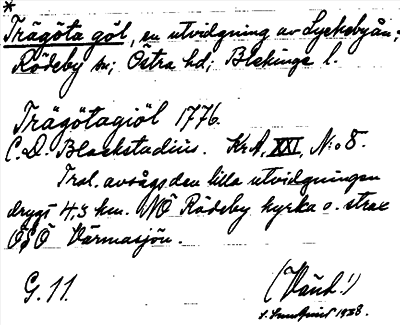 *
Trägöta göl, en utvidgning av Lyckebyån;
Rödeby sn; Östra hd; Blekinge l.
Trägötagiöl 1776.
C. D. Blackstadius. Kr A, XXI, N:o 8.
Trol. avsågs den lilla utvidgningen
drygt 4,3 km. NÖ Rödeby kyrka o. strax
OSÖ Värmasjön.
G. 11.
(Vänd!)
1938.